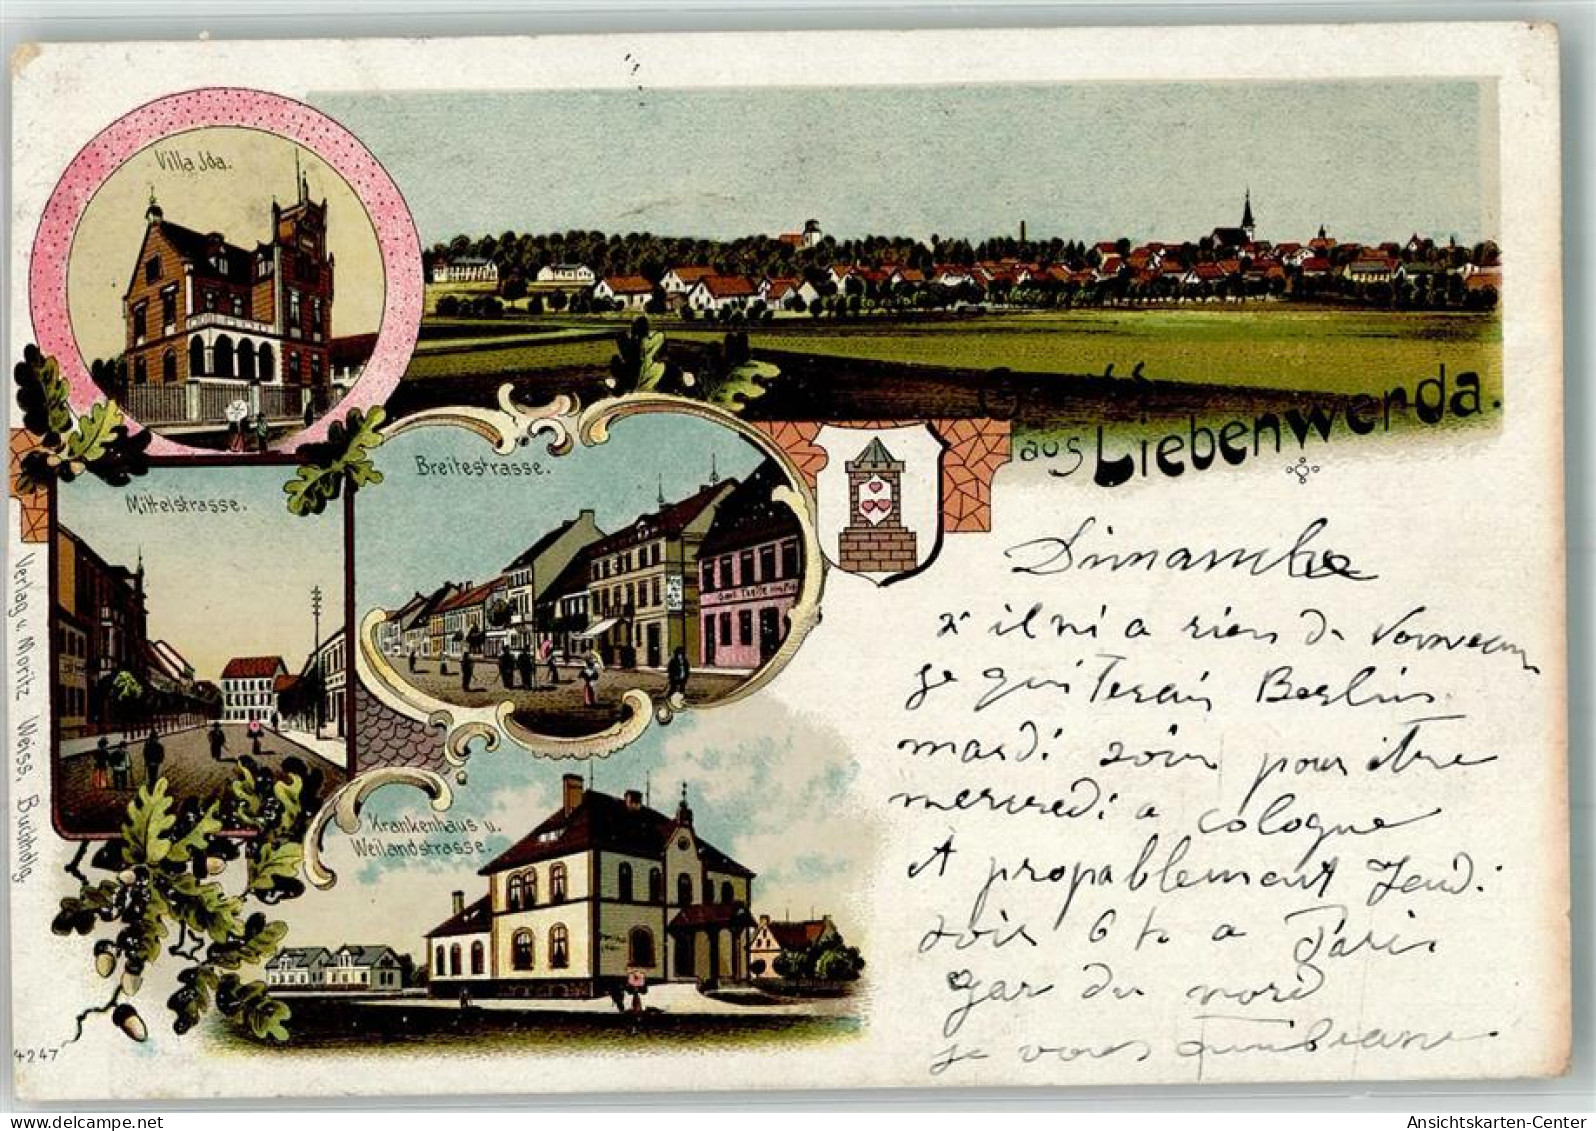 Villa Ida.
Gruss
aus Liebenwerda.
Breitestrasse.
Mittelstrasse.
Krankenhaus u.
Weilandstrasse.
Verlag v. Moritz Weiss, Buchhdlg.
4247
Dimanche
s il ni a rien de
je quiterai Berlin
mardi soir pour être
mercredi a cologne
et propablement Jeudi
soir 6 h a Paris
gar du nord
je vous
Ansichtskarten-Center